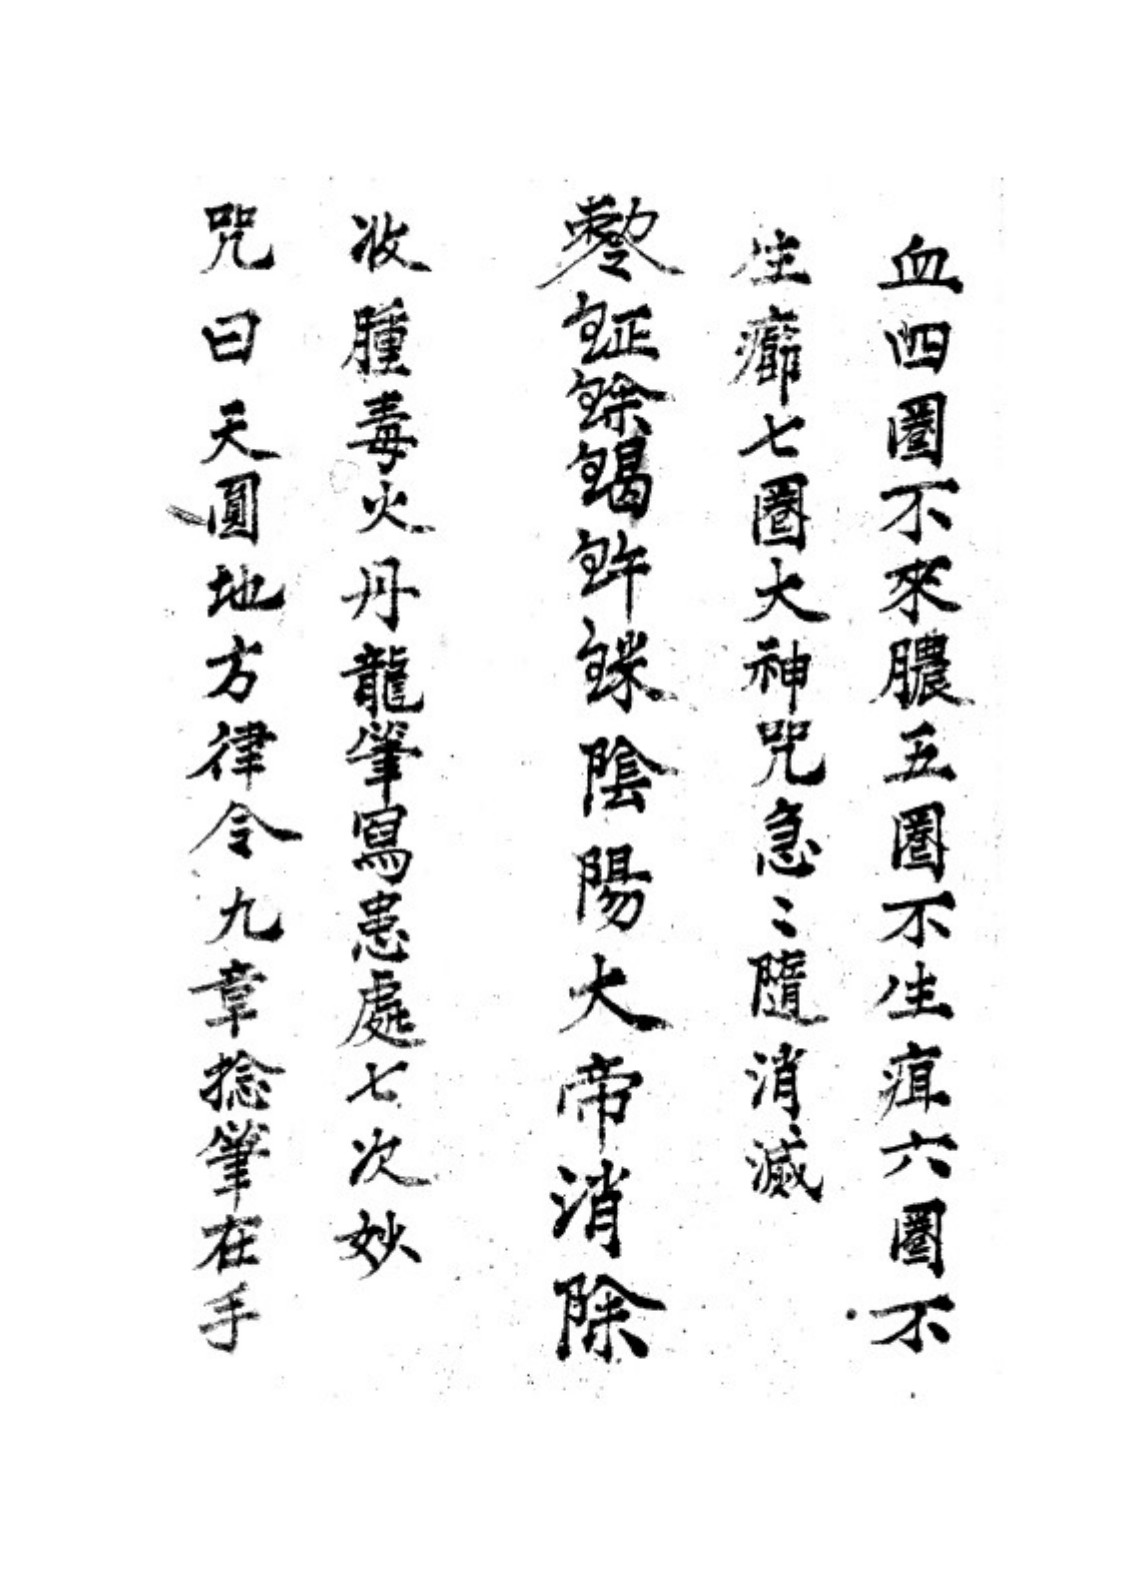 血四圈不來膿五圈不生疽六圈不
生癤七圈大神咒急〻隨消滅
陰陽大帝消除
收腫毒火丹龍筆寫患處七次妙
咒曰天圓地方律令九章捻筆在手